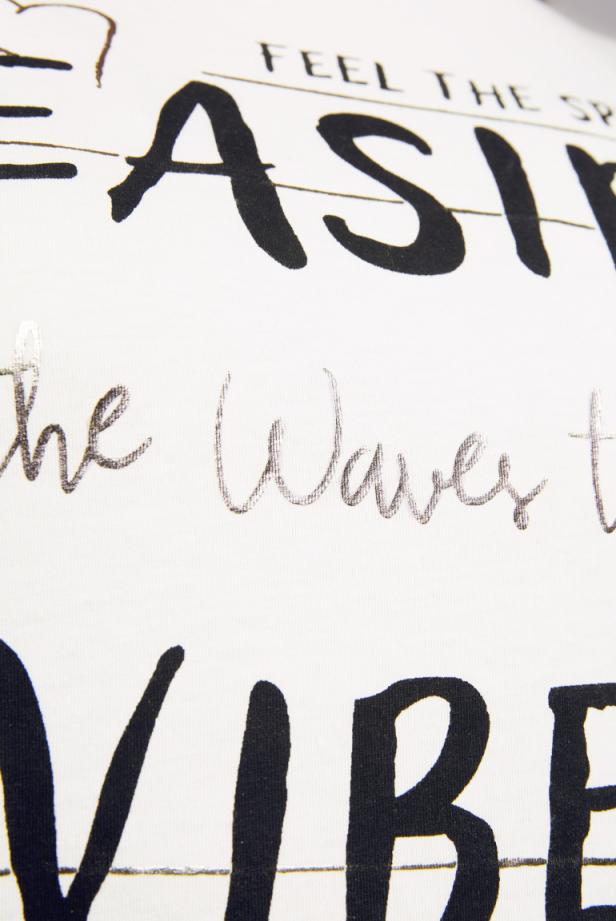 FEEL THE SP
EASI
the Waves t
VIBE